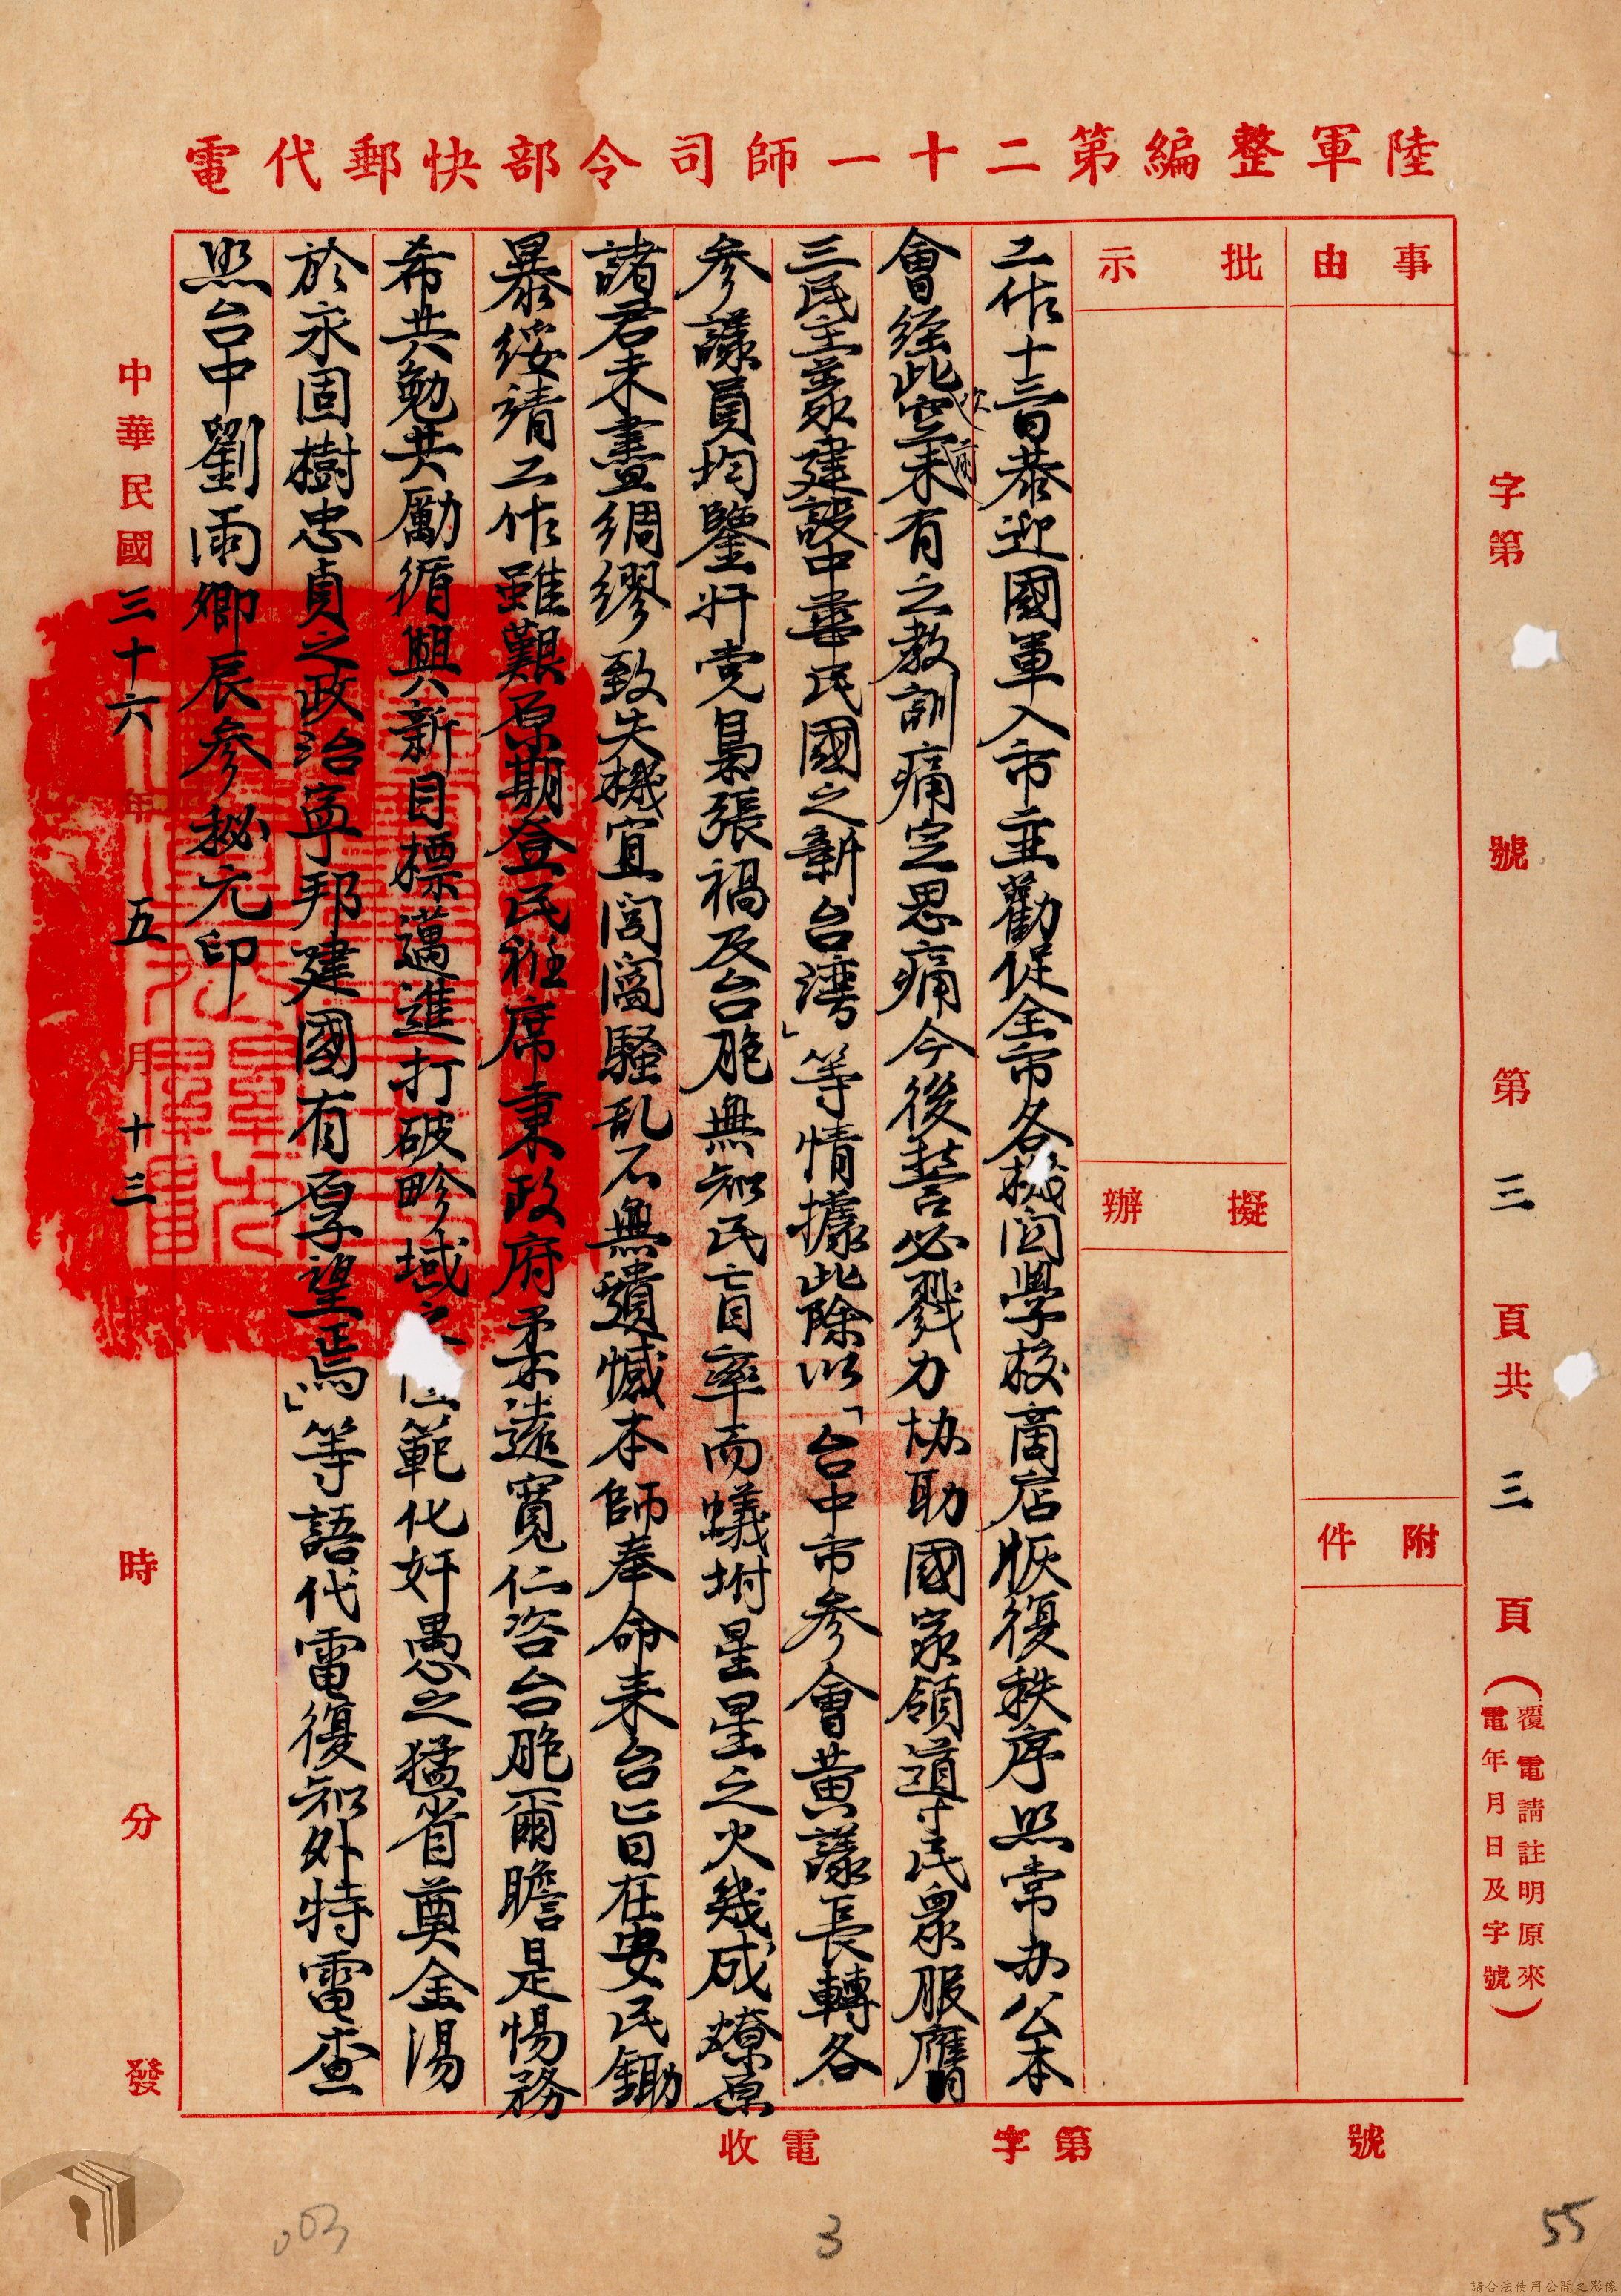 陸軍整編第二十一師司令部快郵代電
字第 號 第三頁共三頁（覆電請註明原來電年月日及字號）
事由
附件
批示
擬辦
工作十三日恭迎國軍入市並勸促全市各機関學校商店恢復秩序照常办公本
會經此空前未有之教訓痛定思痛今後誓必戮力協助國家領導民眾服膺
三民主義建設中華民國之新台灣」等情據此除以「台中市參會黃議長轉各
參議員均鑒奸党梟張禍及台胞無知民盲率而蟻坿星星之火幾成燎原
諸君未盡綢繆致失機宜閭閻騷乱不無遺憾本師奉命来台旨在安民鋤
暴綏靖工作雖艱原期登民袵席秉政府柔遠寬仁咨台胞爾瞻是惕務
希共勉共勵循興新目標邁進打破畛域之 範化奸愚之猛省奠金湯
於永固樹忠貞之政治寧邦建國有厚望焉」等語代電復知外特電查
照台中劉雨卿辰參秘元印
中華民國三十六年五月十三 時 分 發
電收 字第 號
003
3
55
請合法使用公開之影像